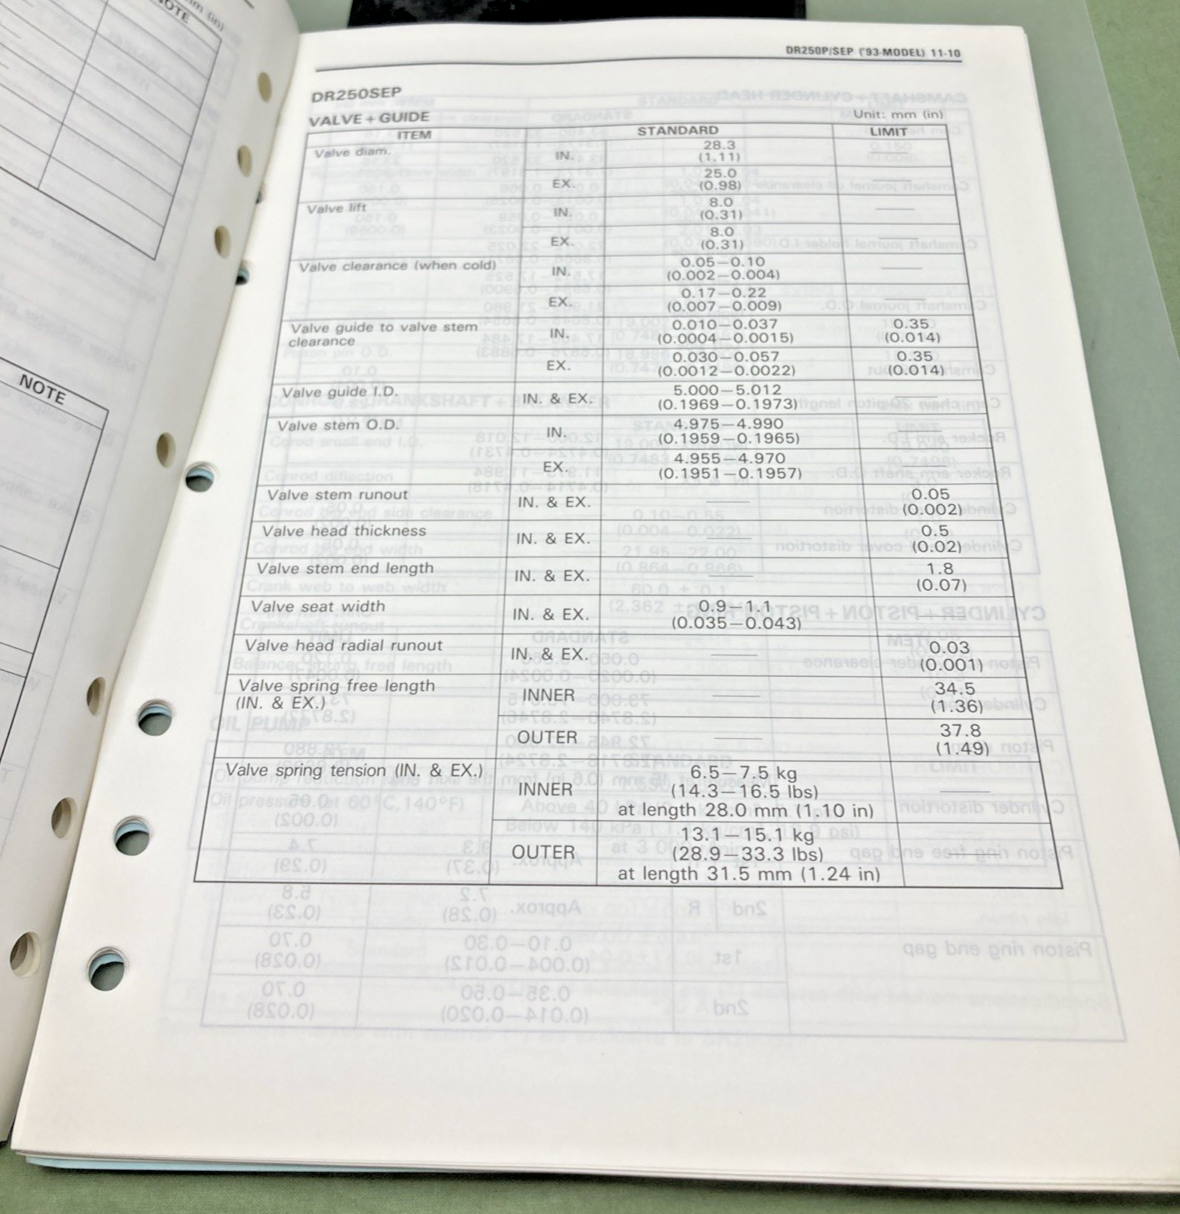 NOTE
NOTE
DR250P/SEP ('93-MODEL) 11-10
DR250SEP
VALVE + GUIDE
Unit: mm (in)
ITEM STANDARD LIMIT
Valve diam. IN. 28.3 ——
(1.11)
EX. 25.0 ——
(0.98)
Valve lift IN. 8.0 ——
(0.31)
EX. 8.0 ——
(0.31)
Valve clearance (when cold) IN. 0.05—0.10 ——
(0.002—0.004)
EX. 0.17—0.22 ——
(0.007—0.009)
Valve guide to valve stem IN. 0.010—0.037 0.35
clearance (0.0004—0.0015) (0.014)
EX. 0.030—0.057 0.35
(0.0012—0.0022) (0.014)
Valve guide I.D. IN. & EX. 5.000—5.012 ——
(0.1969—0.1973)
Valve stem O.D. IN. 4.975—4.990 ——
(0.1959—0.1965)
EX. 4.955—4.970 ——
(0.1951—0.1957)
Valve stem runout IN. & EX. —— 0.05
(0.002)
Valve head thickness IN. & EX. —— 0.5
(0.02)
Valve stem end length IN. & EX. —— 1.8
(0.07)
Valve seat width IN. & EX. 0.9—1.1 ——
(0.035—0.043)
Valve head radial runout IN. & EX. —— 0.03
(0.001)
Valve spring free length INNER —— 34.5
(IN. & EX.) (1.36)
OUTER —— 37.8
(1.49)
Valve spring tension (IN. & EX.) INNER 6.5—7.5 kg ——
(14.3—16.5 lbs)
at length 28.0 mm (1.10 in)
OUTER 13.1—15.1 kg ——
(28.9—33.3 lbs)
at length 31.5 mm (1.24 in)